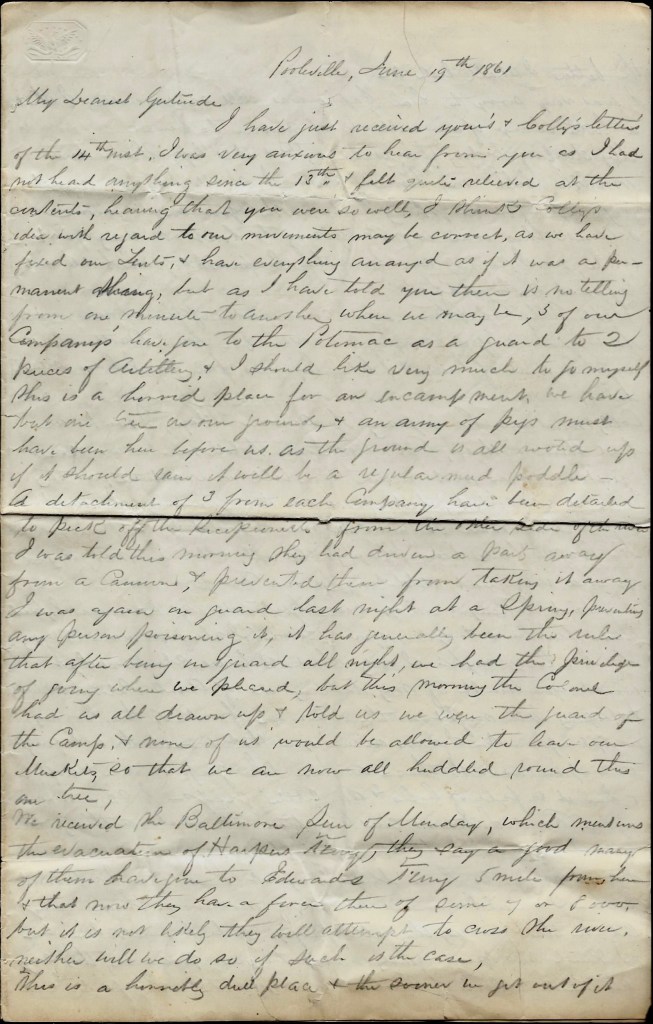 Poolsville, June 19th 1861
My Dearest Gertrude
I have just received your's & Colly's letters
of the 14th inst. I was very anxious to hear from you as I had
not heard anything since the 13th & felt quite relieved at the
contents, hearing that you were so well, I think Colly's
idea with regard to our movements may be correct, as we have
fixed our Tents, & have everything arranged as if it was a per-
manent thing, but as I have told you there is no telling
from one minute to another where we may be, 3 of our
Company's have gone to the Potomac as a guard to 2
pieces of Artillery, & I should like very much to go myself
this is a horrid place for an encampment, we have
but one tree on our ground, & an army of pigs must
have been here before us. as the ground is all rooted up
if it should rain it will be a regular mud poddle -
A detachment of 3 from each Company have been detailed
to pick off the from the other side of the river
I was told this morning they had driven a party away
from a Cannon, & prevented them from taking it away
I was again on guard last night at a Spring, preventing
any person poisoning it, it has generally been the rule
that after being on guard all night, we had the privilege
of going where we pleased, but this morning the Colonel
had us all drawn up & told us we were the guard of
the Camp, & none of us would be allowed to leave our
Muskets, so that we are now all huddled round this
one tree,
We received the Baltimore Sun of Monday, which mentions
the evacuation of Harpers Ferry, they say a good many
of them have gone to Edwards Ferry 5 mile from here
& that now they have a force there of some 7 or 8000,
but it is not likely they will attempt to cross the river,
neither will we do so if such is the case,
This is a horribly dull place & the sooner we get out of it